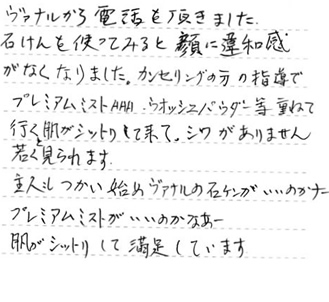 ヴァナルから電話を頂きました.
石けんを使ってみると顔に違和感
がなくなりました。カンセリングの方の指導で
プレミアムミストAAA.ウオッシュパウダー等重ねて
行く肌がシットリして来て。シワがありません
若く見られます.
主人もつかい始めヴァナルの石ケンがいいのかナ
プレミアムミストがいいのかなあー
肌がシットリして満足しています